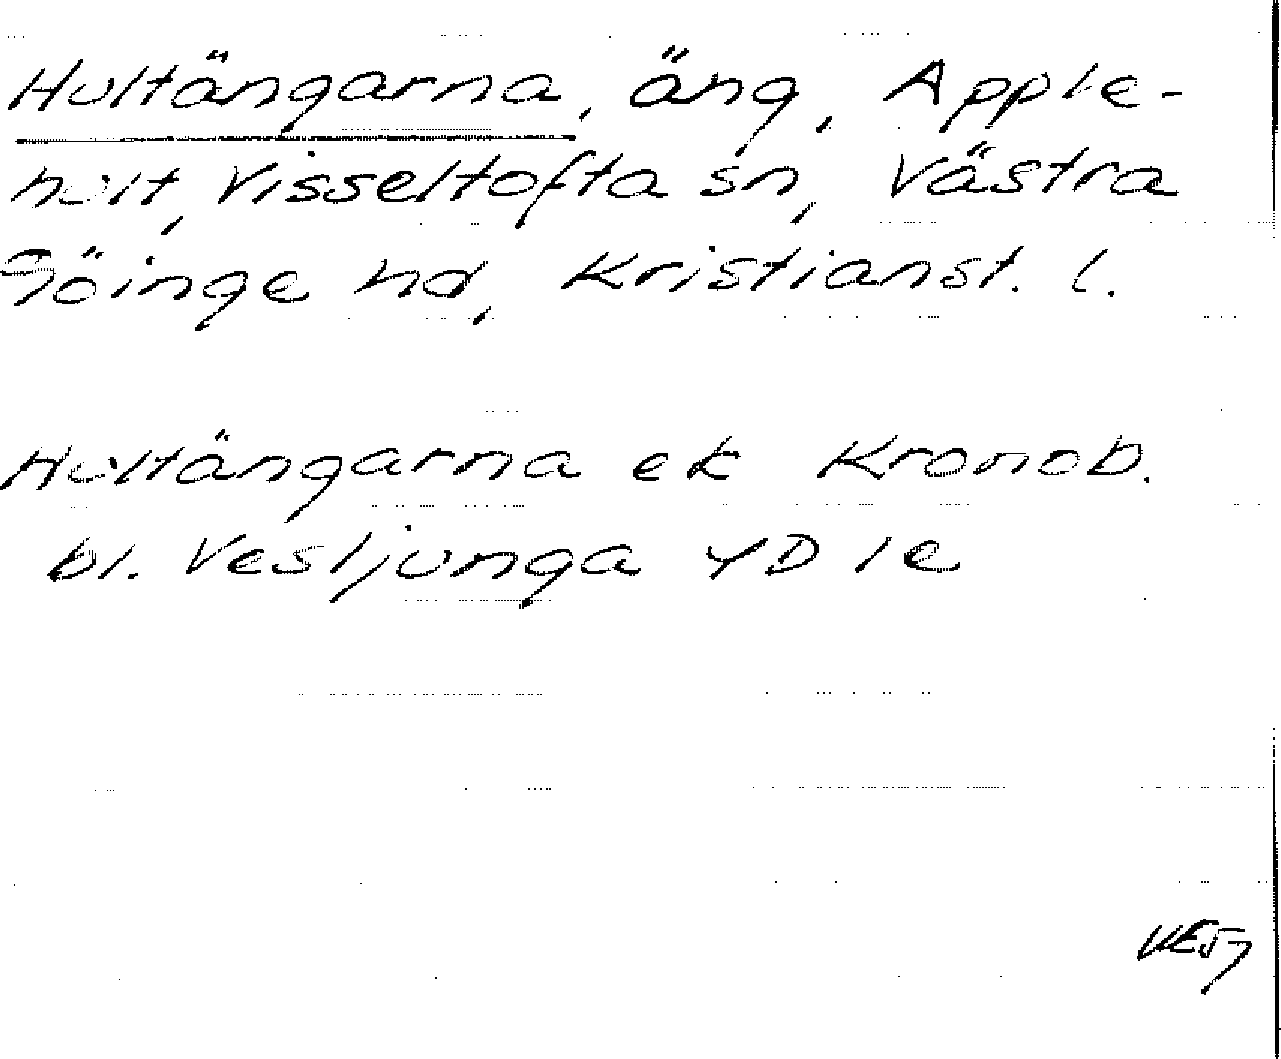 Hultängarna, äng, Apple-
hult, Visseltofta sn, Västra
Göinge hd, Kristianst. l.
Hultängarna ek Kronob.
bl. Vesljunga 4D 1e